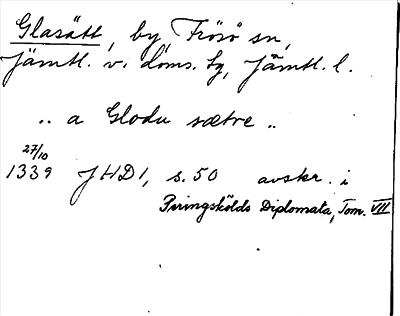 Glasätt, by Frösö sn,
Jämtl. v. doms. tg, Jämtl. l.
.. a Glodu sætre ..
27/10
1339 JHD 1, s. 50 avskr. i
Peringskölds Diplomata, Tom. VII